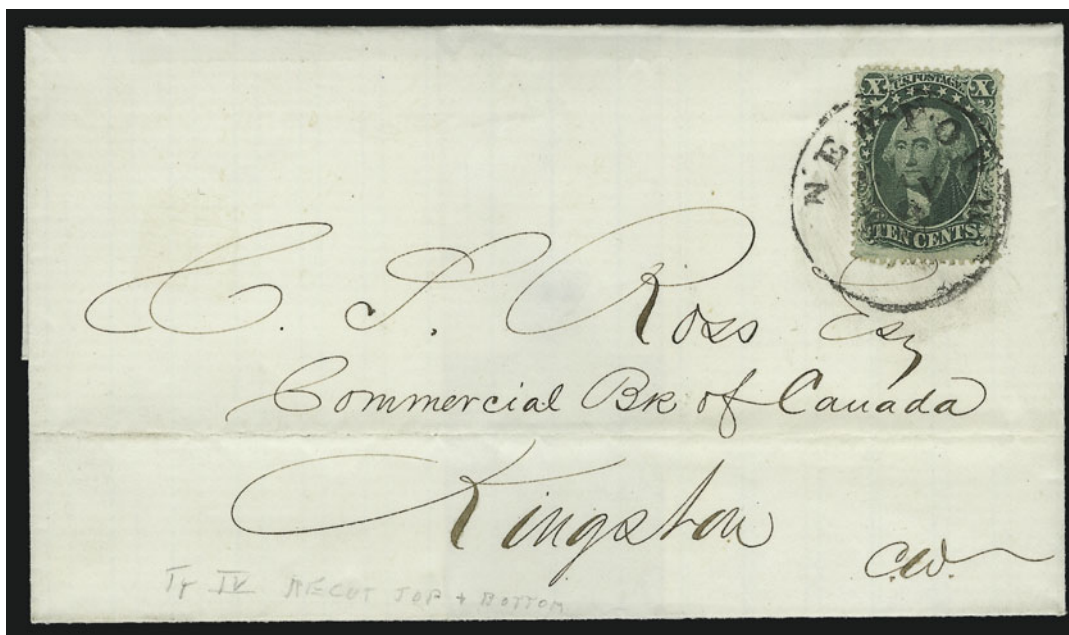 X U.S. POSTAGE X
NEW YORK
TEN CENTS
C. S. Ross Esq
Commercial Bk of Canada
Kingston
C.W.
Ty IV RECUT TOP + BOTTOM